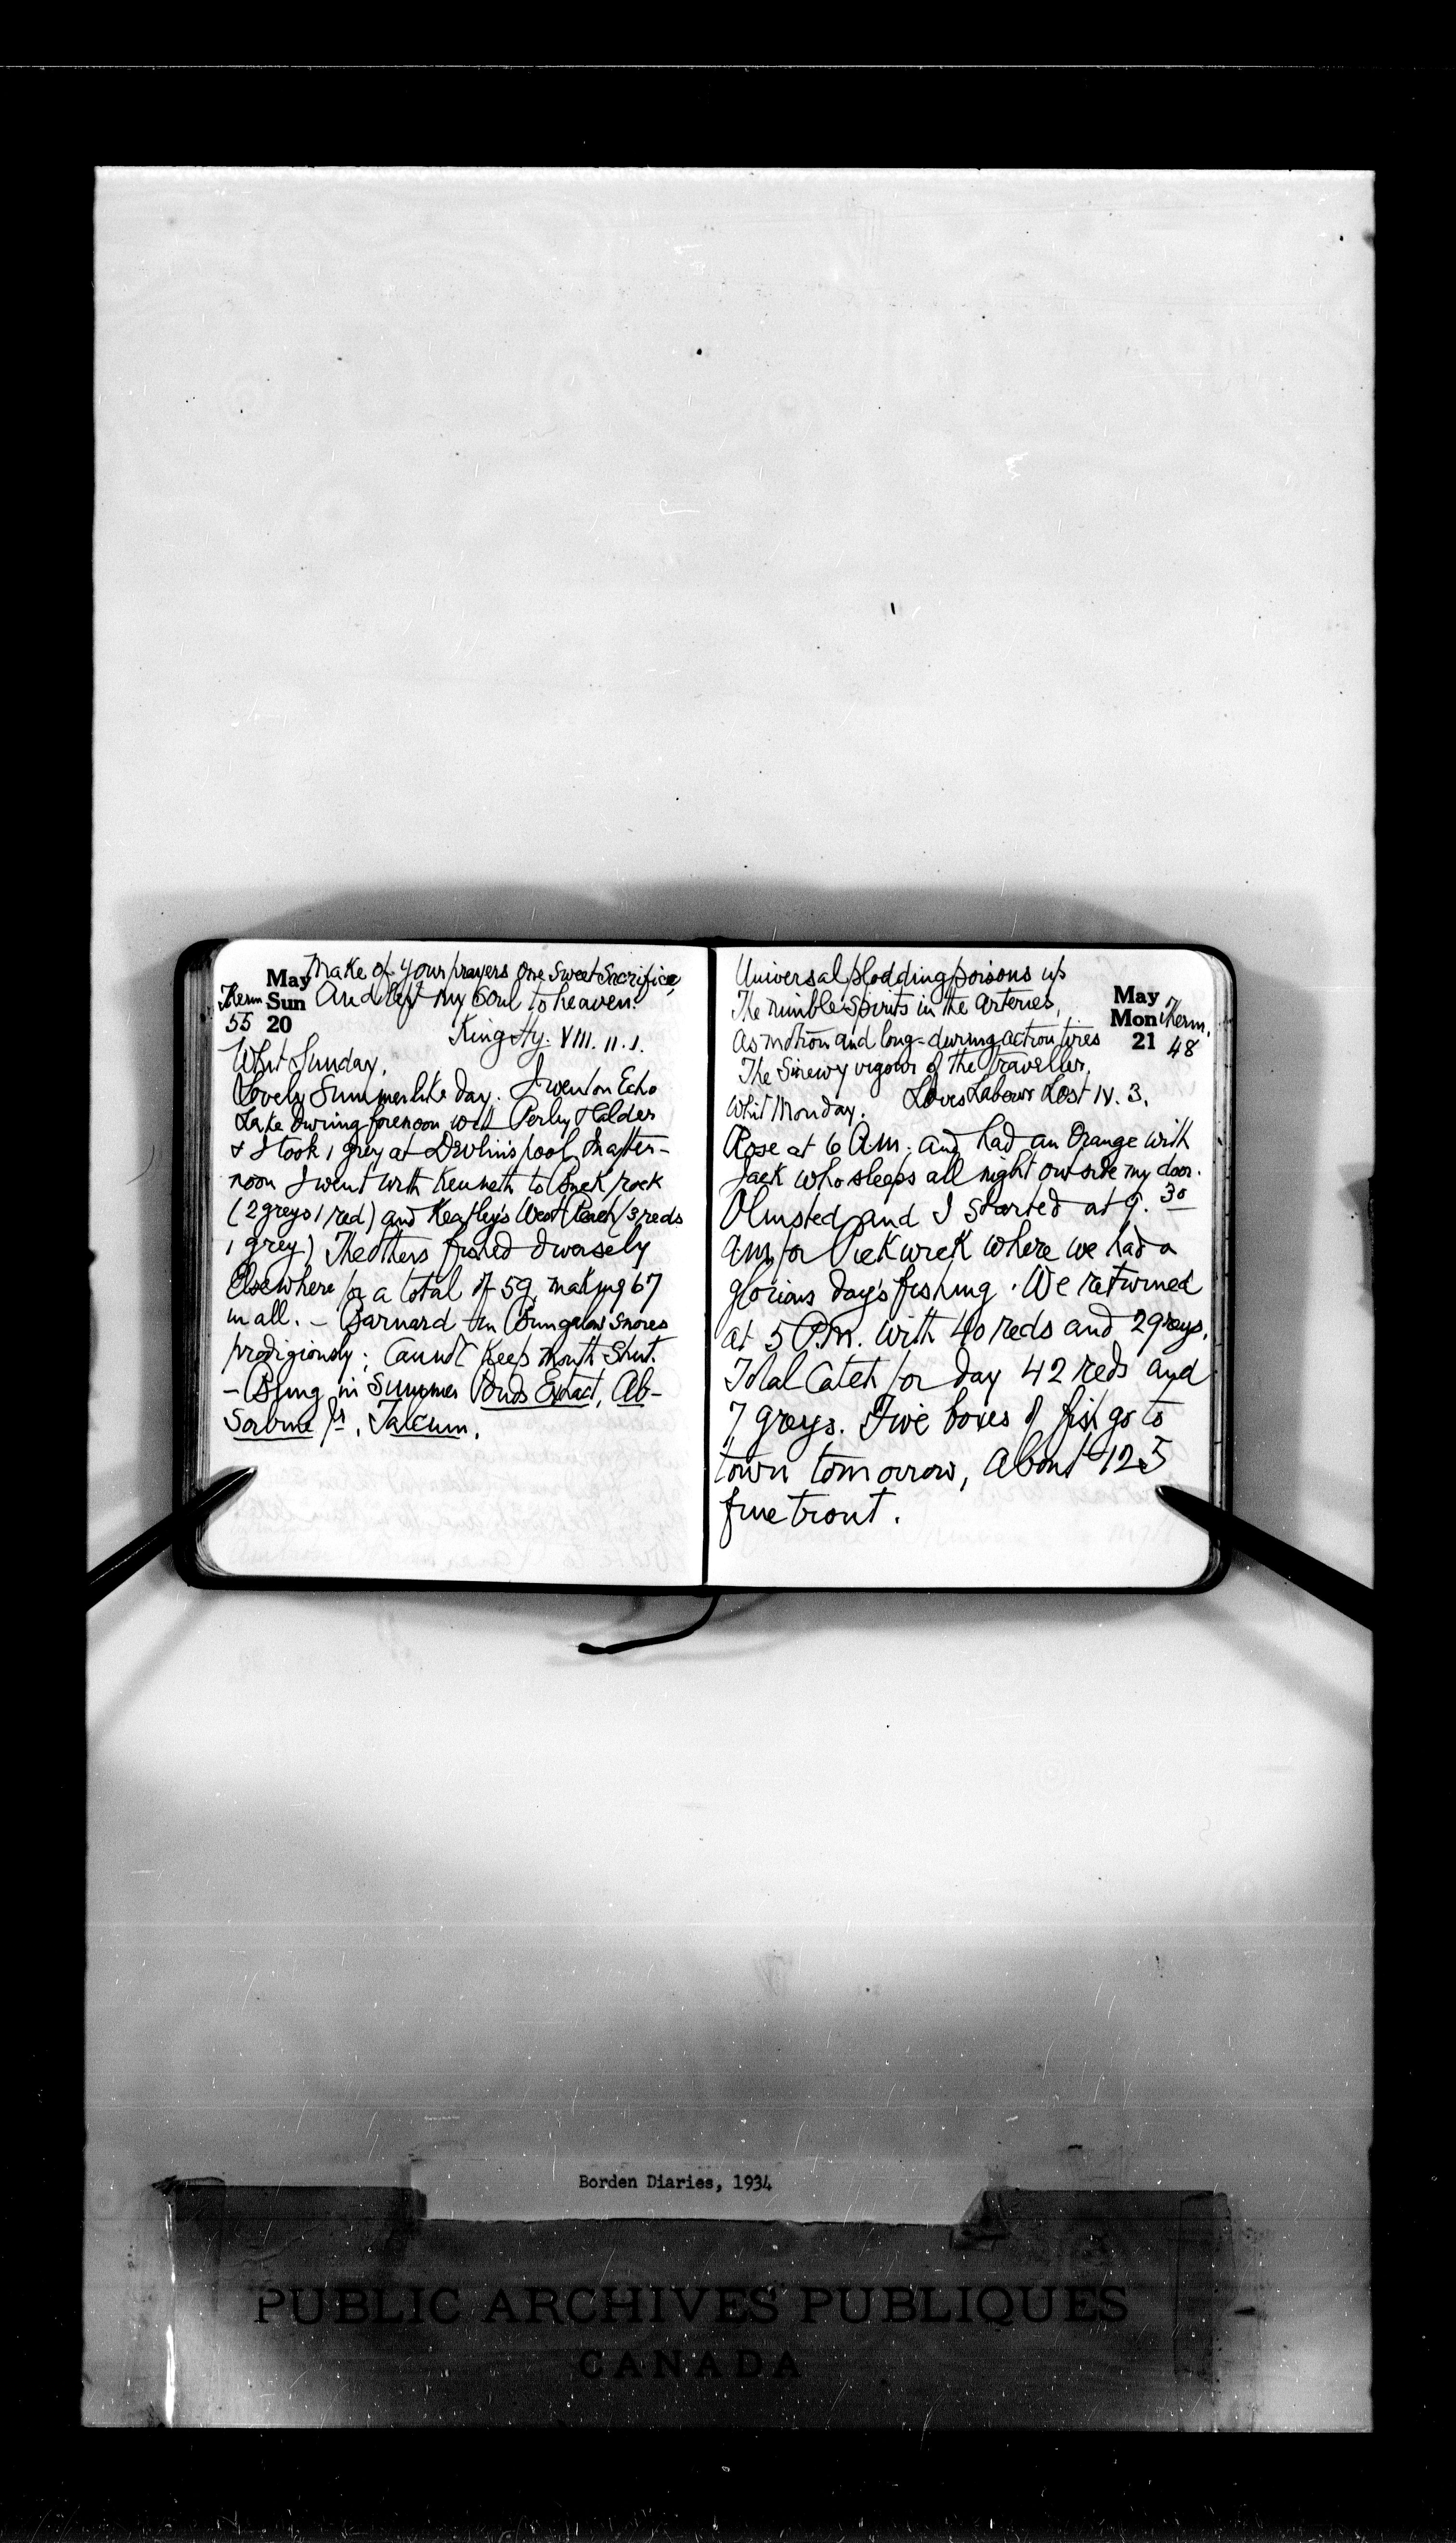 Make of your prayers one sweet Sacrifice,
And lift my Soul to heaven.
King Hy. VIII. II. 1.
May
Sun
20
Therm
55
Whit Sunday.
Lovely Summerlike day. I went on Echo
Lake during forenoon with Perley Halder
& I took 1 grey at Devlin's pool. In after-
noon I went with Kenneth to rock
(2 greys 1 red) and Keatley's West (3 reds
1 grey) The others fished diversely
Elsewhere for a total of 59, making 67
in all. – Barnard in Bungalow snores
prodigiously; Cannot keep mouth shut.
– Bring in Summer Ponds Extract, Ab-
sorbine Jr., Talcum.
Universal plodding poisons up
The nimble Spirits in the arteries,
As motion and long-during action tires
The Sinewy vigour of the Traveller.
Loves Labours Lost IV. 3.
May
Mon
21
Therm.
48
Whit Monday.
Rose at 6 A.M. and had an Orange with
Jack who sleeps all night outside my door.
Olmsted and I started at 9.30
A.M. for Pickwick where we had a
glorious day's fishing. We returned
at 5 P.M. with 40 reds and 2 greys.
Total Catch for day 42 reds and
7 greys. Five boxes of fish go to
town tomorrow, About 125
fine trout.
Borden Diaries, 1934
PUBLIC ARCHIVES PUBLIQUES
CANADA